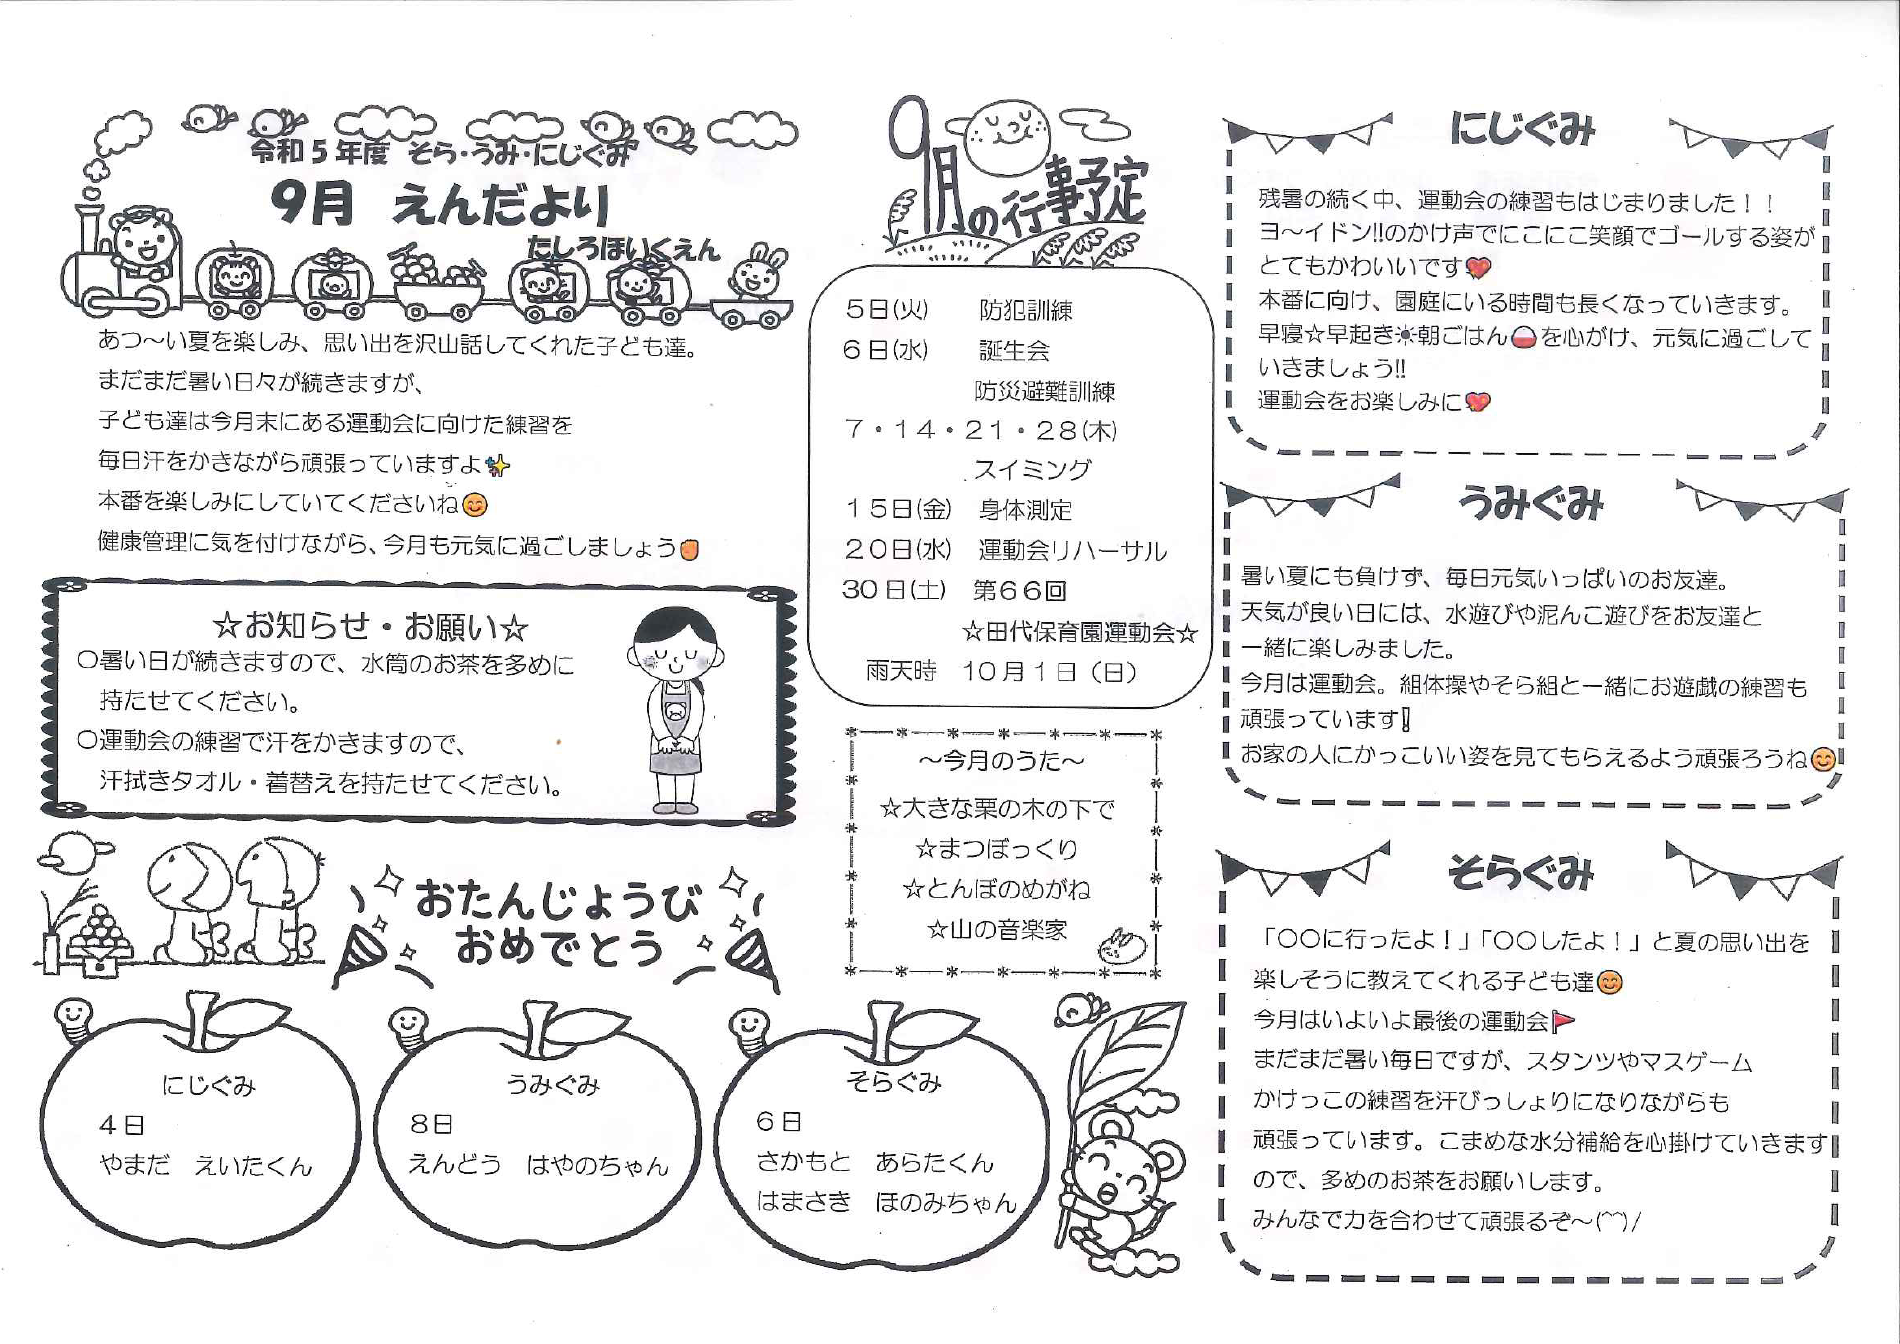 令和５年度 そら・うみ・にじぐみ
９月 えんだより
たしろほいくえん
あつ～い夏を楽しみ、思い出を沢山話してくれた子ども達。
まだまだ暑い日々が続きますが、
子ども達は今月末にある運動会に向けた練習を
毎日汗をかきながら頑張っていますよ✨
本番を楽しみにしていてくださいね😊
健康管理に気を付けながら、今月も元気に過ごしましょう✊
☆お知らせ・お願い☆
〇暑い日が続きますので、水筒のお茶を多めに
持たせてください。
〇運動会の練習で汗をかきますので、
汗拭きタオル・着替えを持たせてください。
おたんじょうび
おめでとう
にじぐみ
４日
やまだ えいたくん
うみぐみ
８日
えんどう はやのちゃん
そらぐみ
６日
さかもと あらたくん
はまさき ほのみちゃん
９月の行事予定
５日(火) 防犯訓練
６日(水) 誕生会
防災避難訓練
７・１４・２１・２８(木)
スイミング
１５日(金) 身体測定
２０日(水) 運動会リハーサル
３０日(土) 第６６回
☆田代保育園運動会☆
雨天時 １０月１日（日）
～今月のうた～
☆大きな栗の木の下で
☆まつぼっくり
☆とんぼのめがね
☆山の音楽家
にじぐみ
残暑の続く中、運動会の練習もはじまりました！！
ヨ～イドン!!のかけ声でにこにこ笑顔でゴールする姿が
とてもかわいいです💖
本番に向け、園庭にいる時間も長くなっていきます。
早寝☆早起き☀朝ごはん🍚を心がけ、元気に過ごして
いきましょう!!
運動会をお楽しみに💖
うみぐみ
暑い夏にも負けず、毎日元気いっぱいのお友達。
天気が良い日には、水遊びや泥んこ遊びをお友達と
一緒に楽しみました。
今月は運動会。組体操やそら組と一緒にお遊戯の練習も
頑張っています❕
お家の人にかっこいい姿を見てもらえるよう頑張ろうね😊
そらぐみ
「〇〇に行ったよ！」「〇〇したよ！」と夏の思い出を
楽しそうに教えてくれる子ども達😊
今月はいよいよ最後の運動会🚩
まだまだ暑い毎日ですが、スタンツやマスゲーム
かけっこの練習を汗びっしょりになりながらも
頑張っています。こまめな水分補給を心掛けていきます
ので、多めのお茶をお願いします。
みんなで力を合わせて頑張るぞ～(^^)/